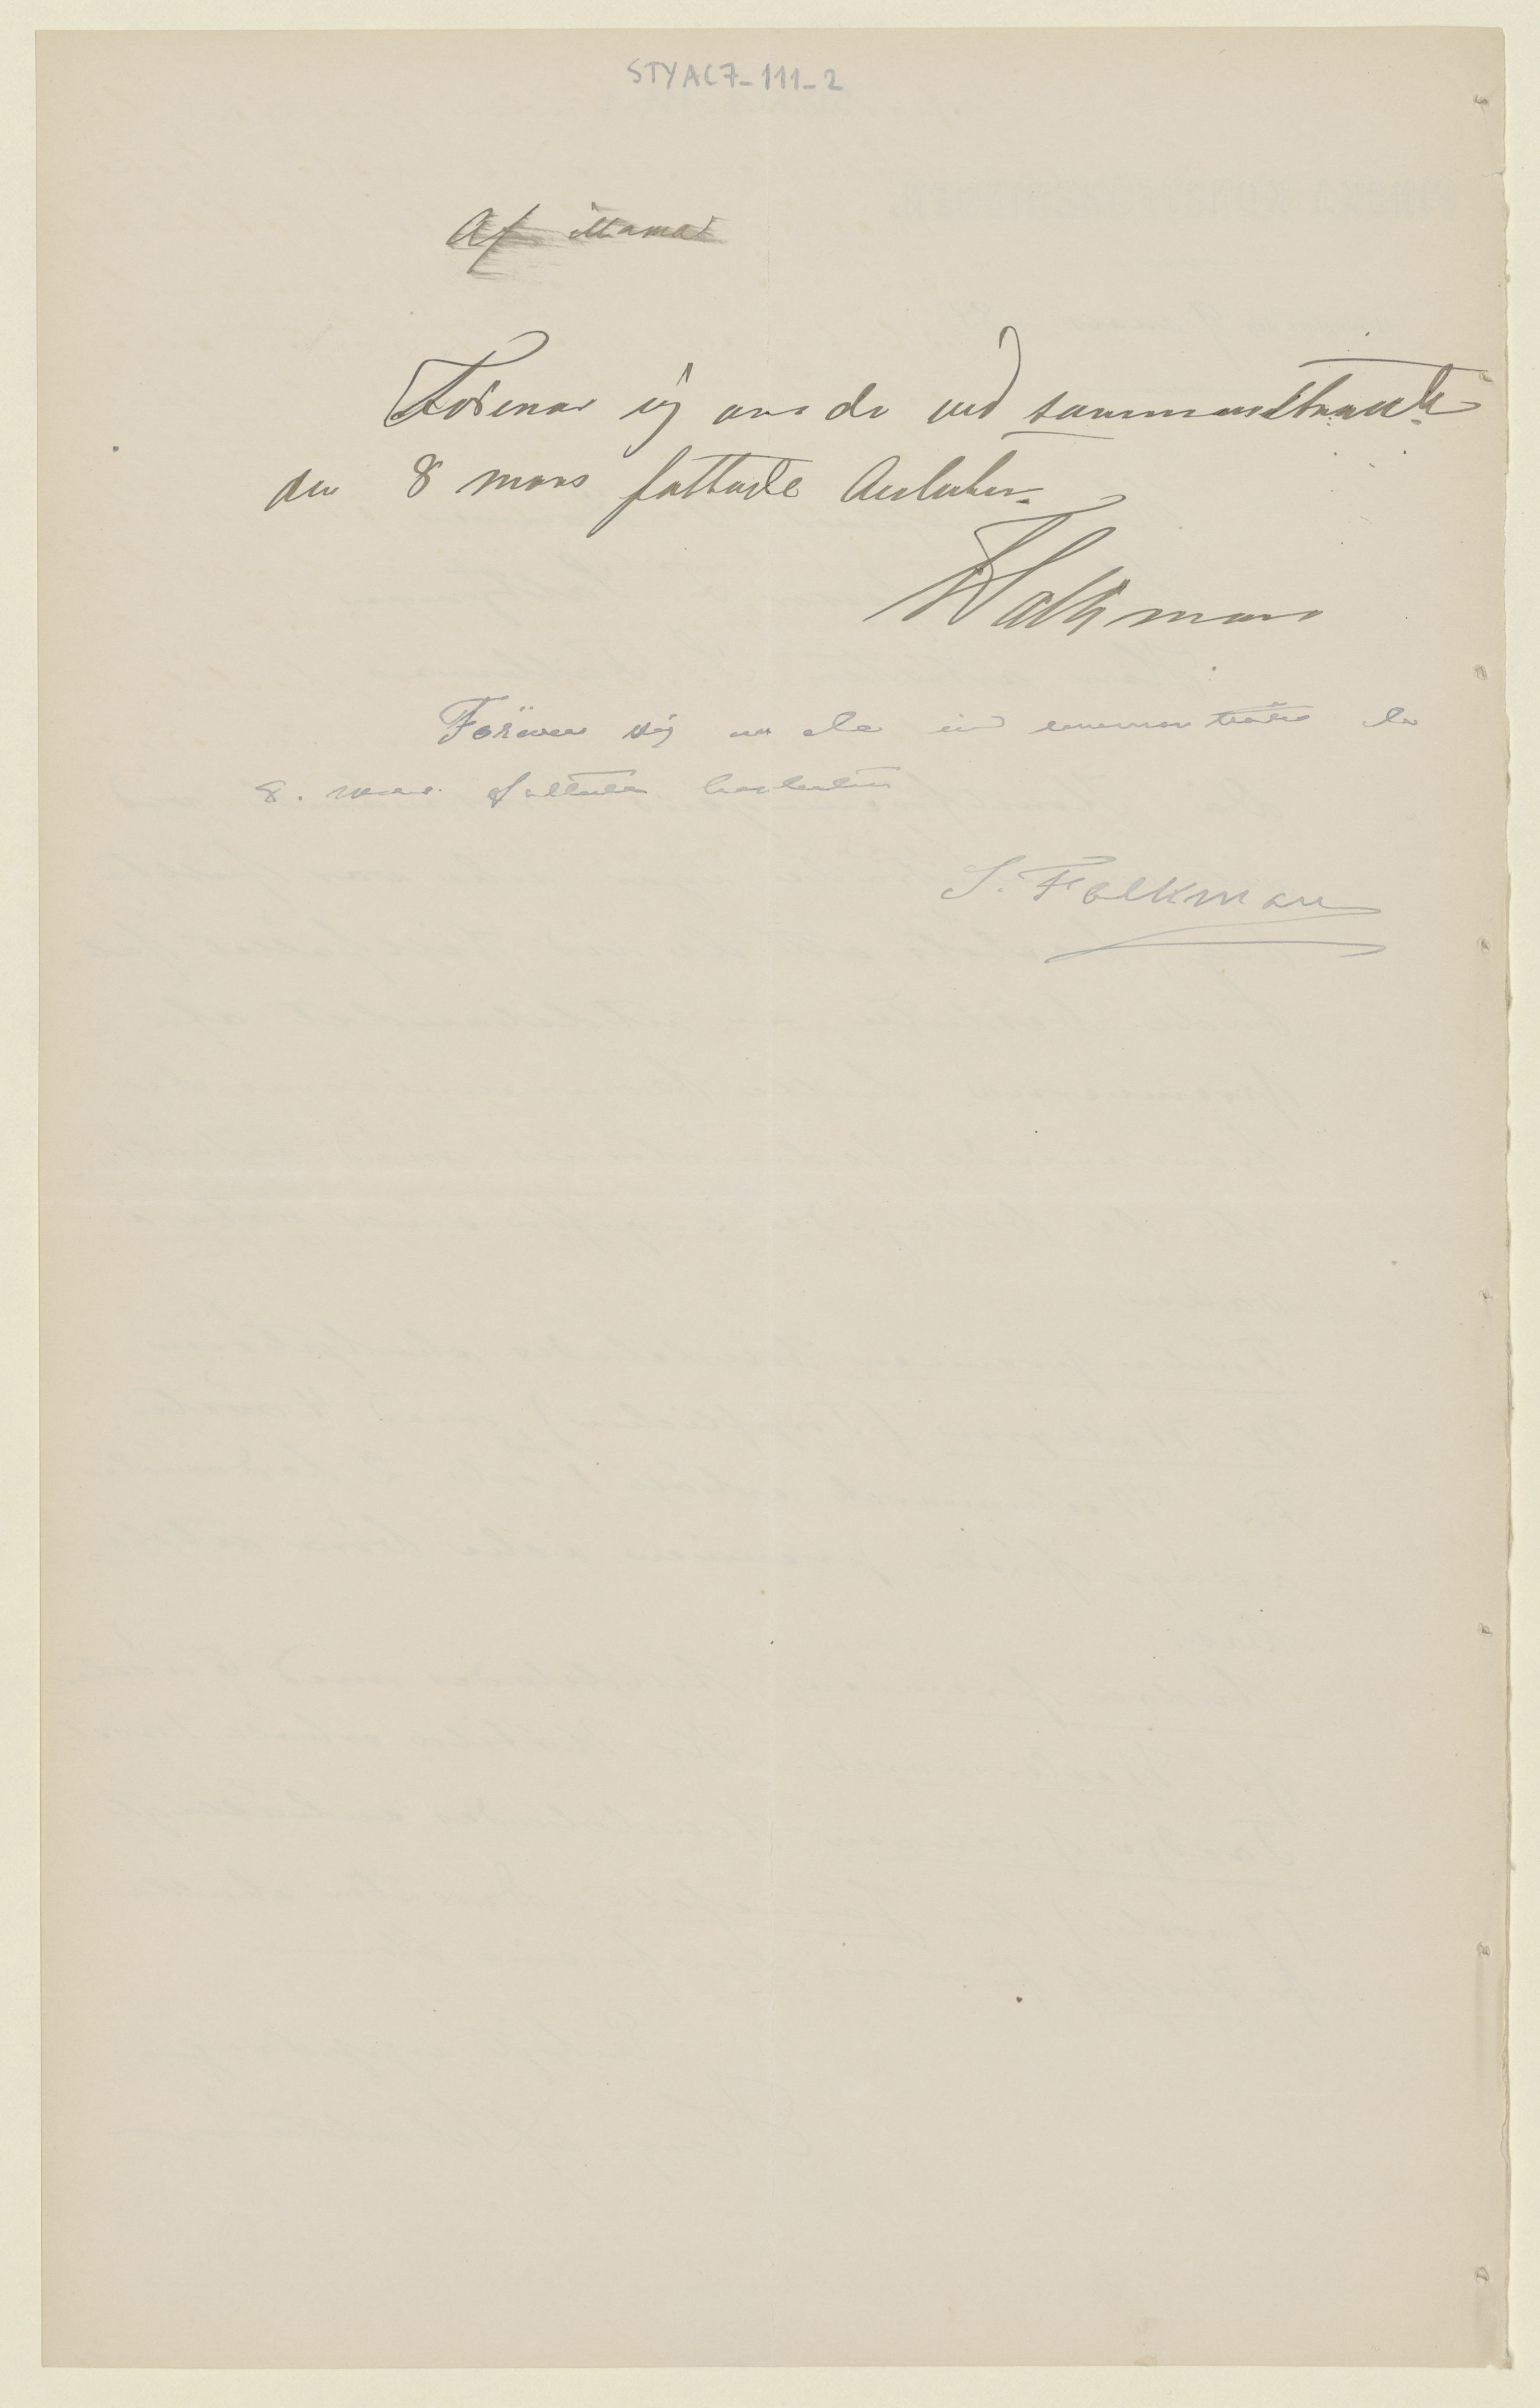 STYAC7-111-2
Af
Förenar sig om de vid sammanträde
den 8 mars fattade besluten.
Förenar sig om de vid sammanträde den
8. mars fattade besluten
S. Falkman